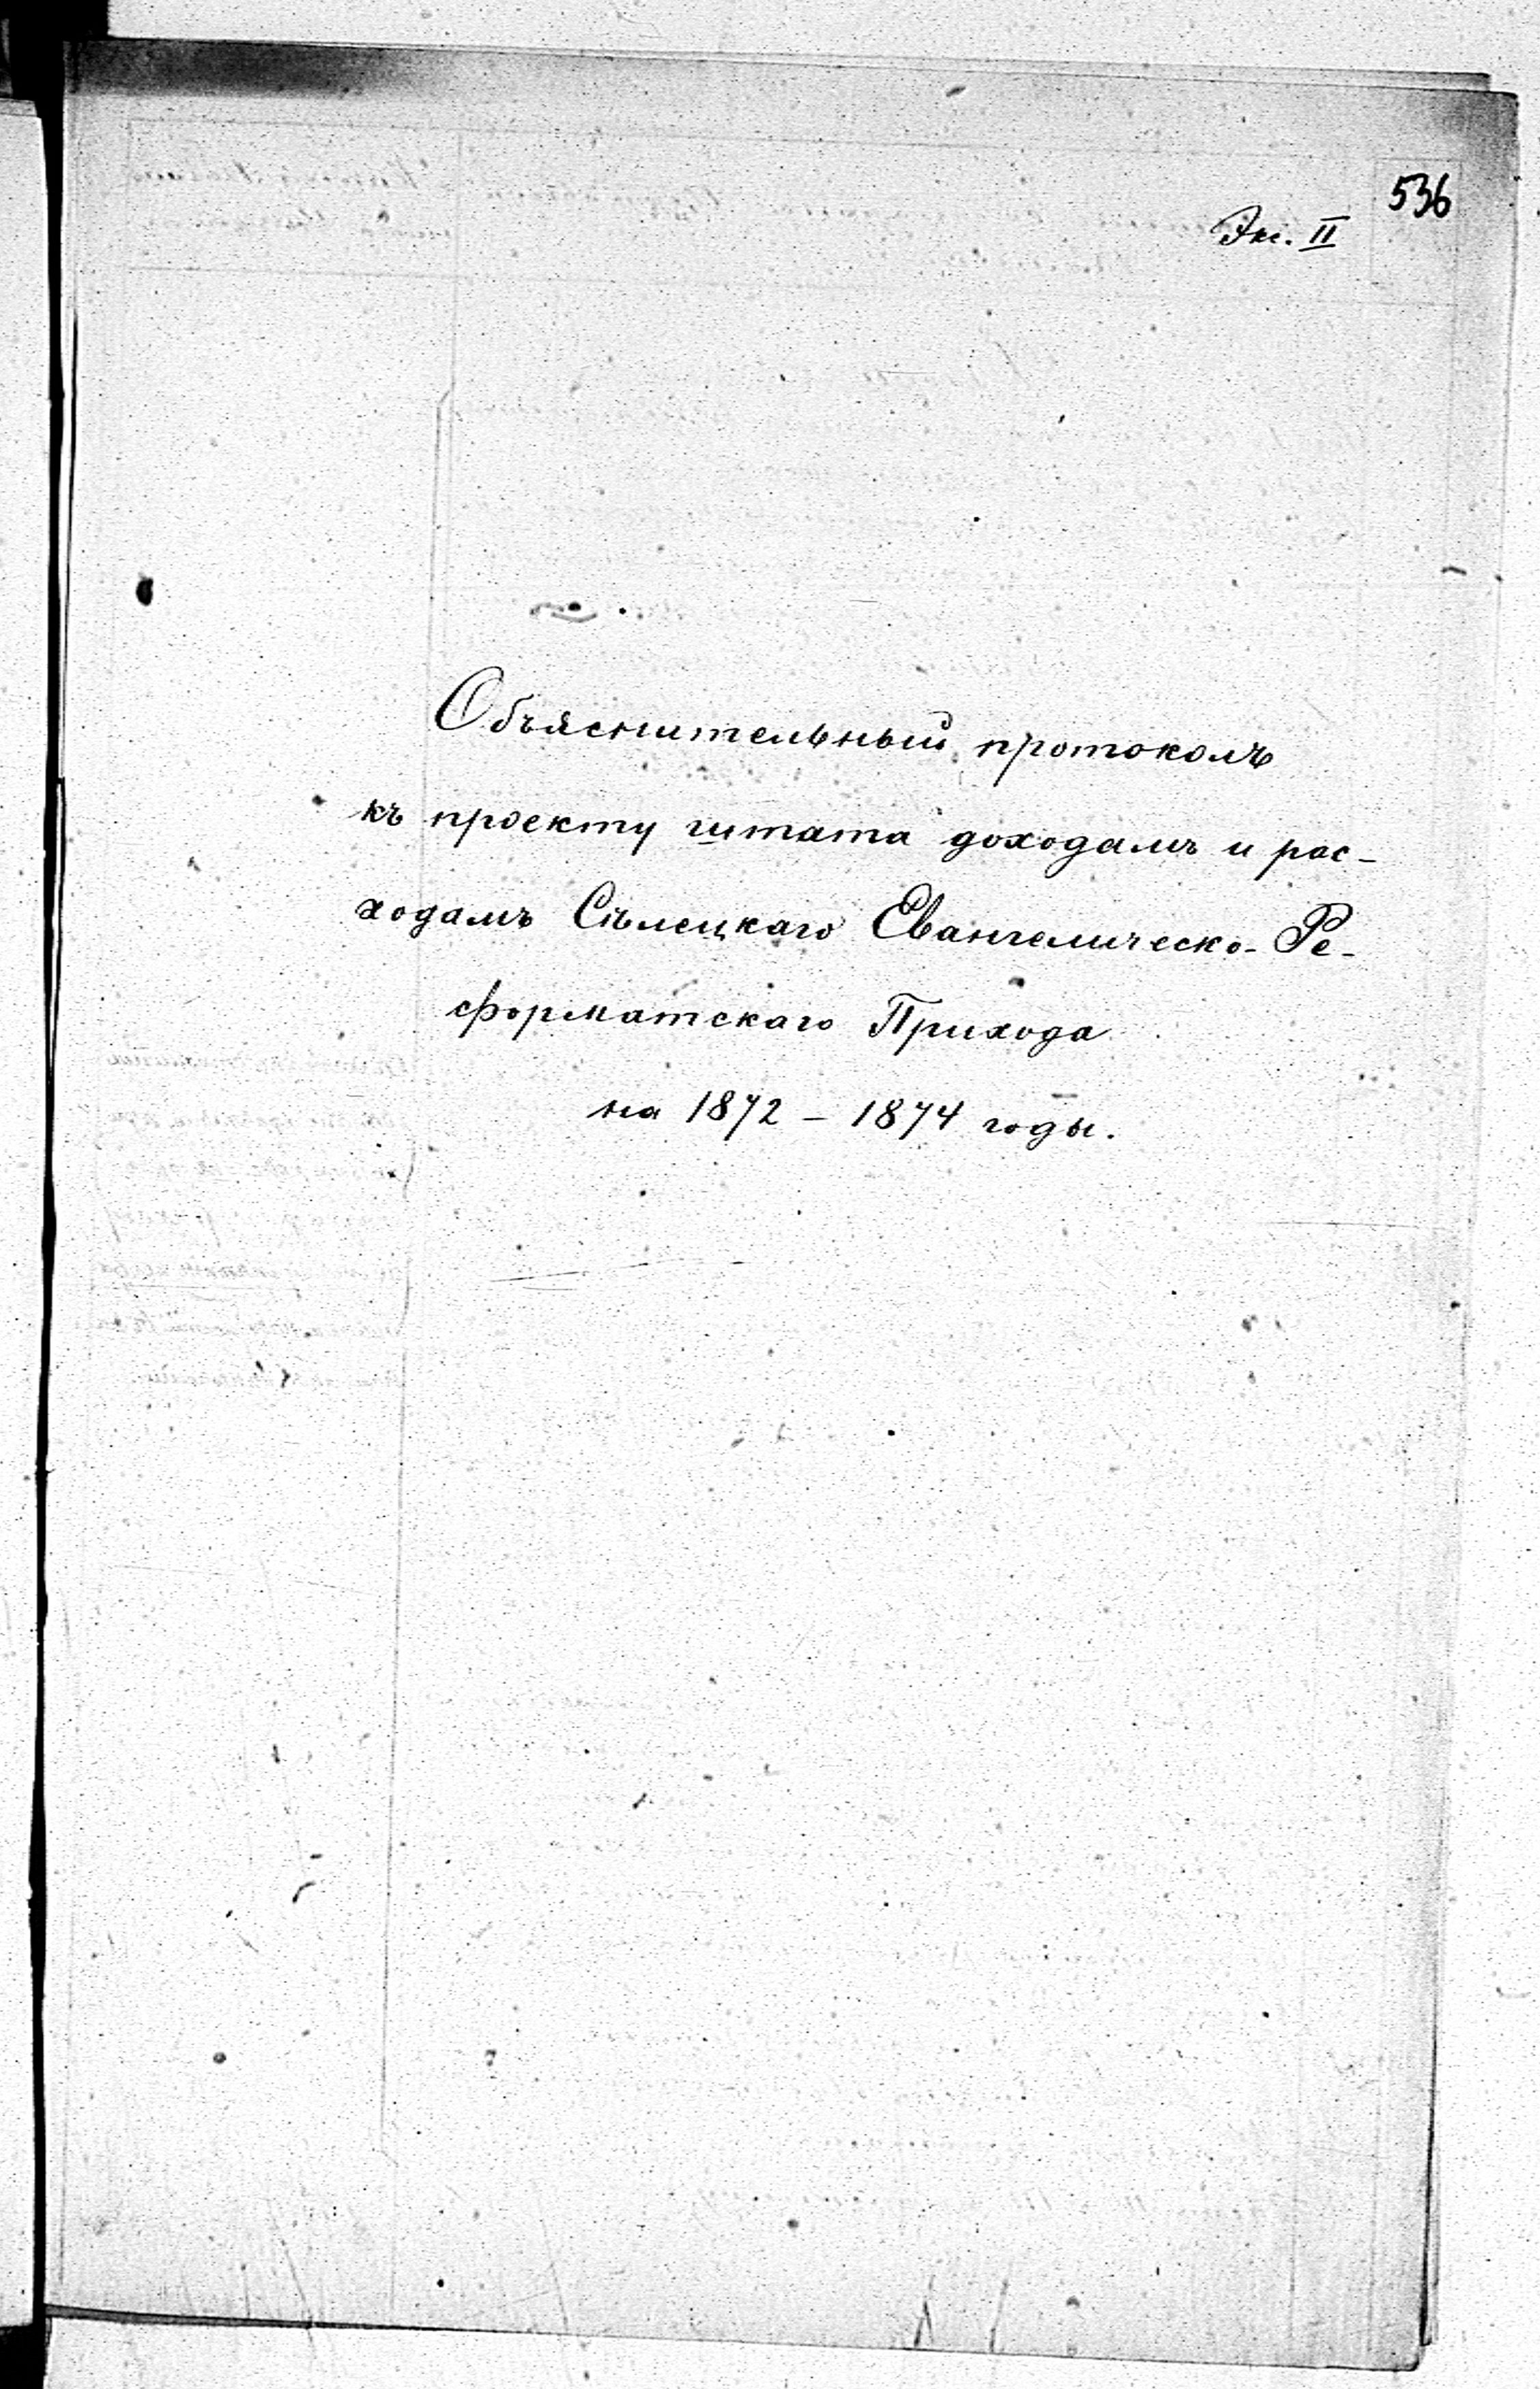 536
Экс. II
Объяснительный протоколъ
къ проекту штата доходамъ и рас-
ходамъ Сѣлецкаго Евангелическо-Ре-
форматскаго Прихода
на 1872 – 1874 годы.